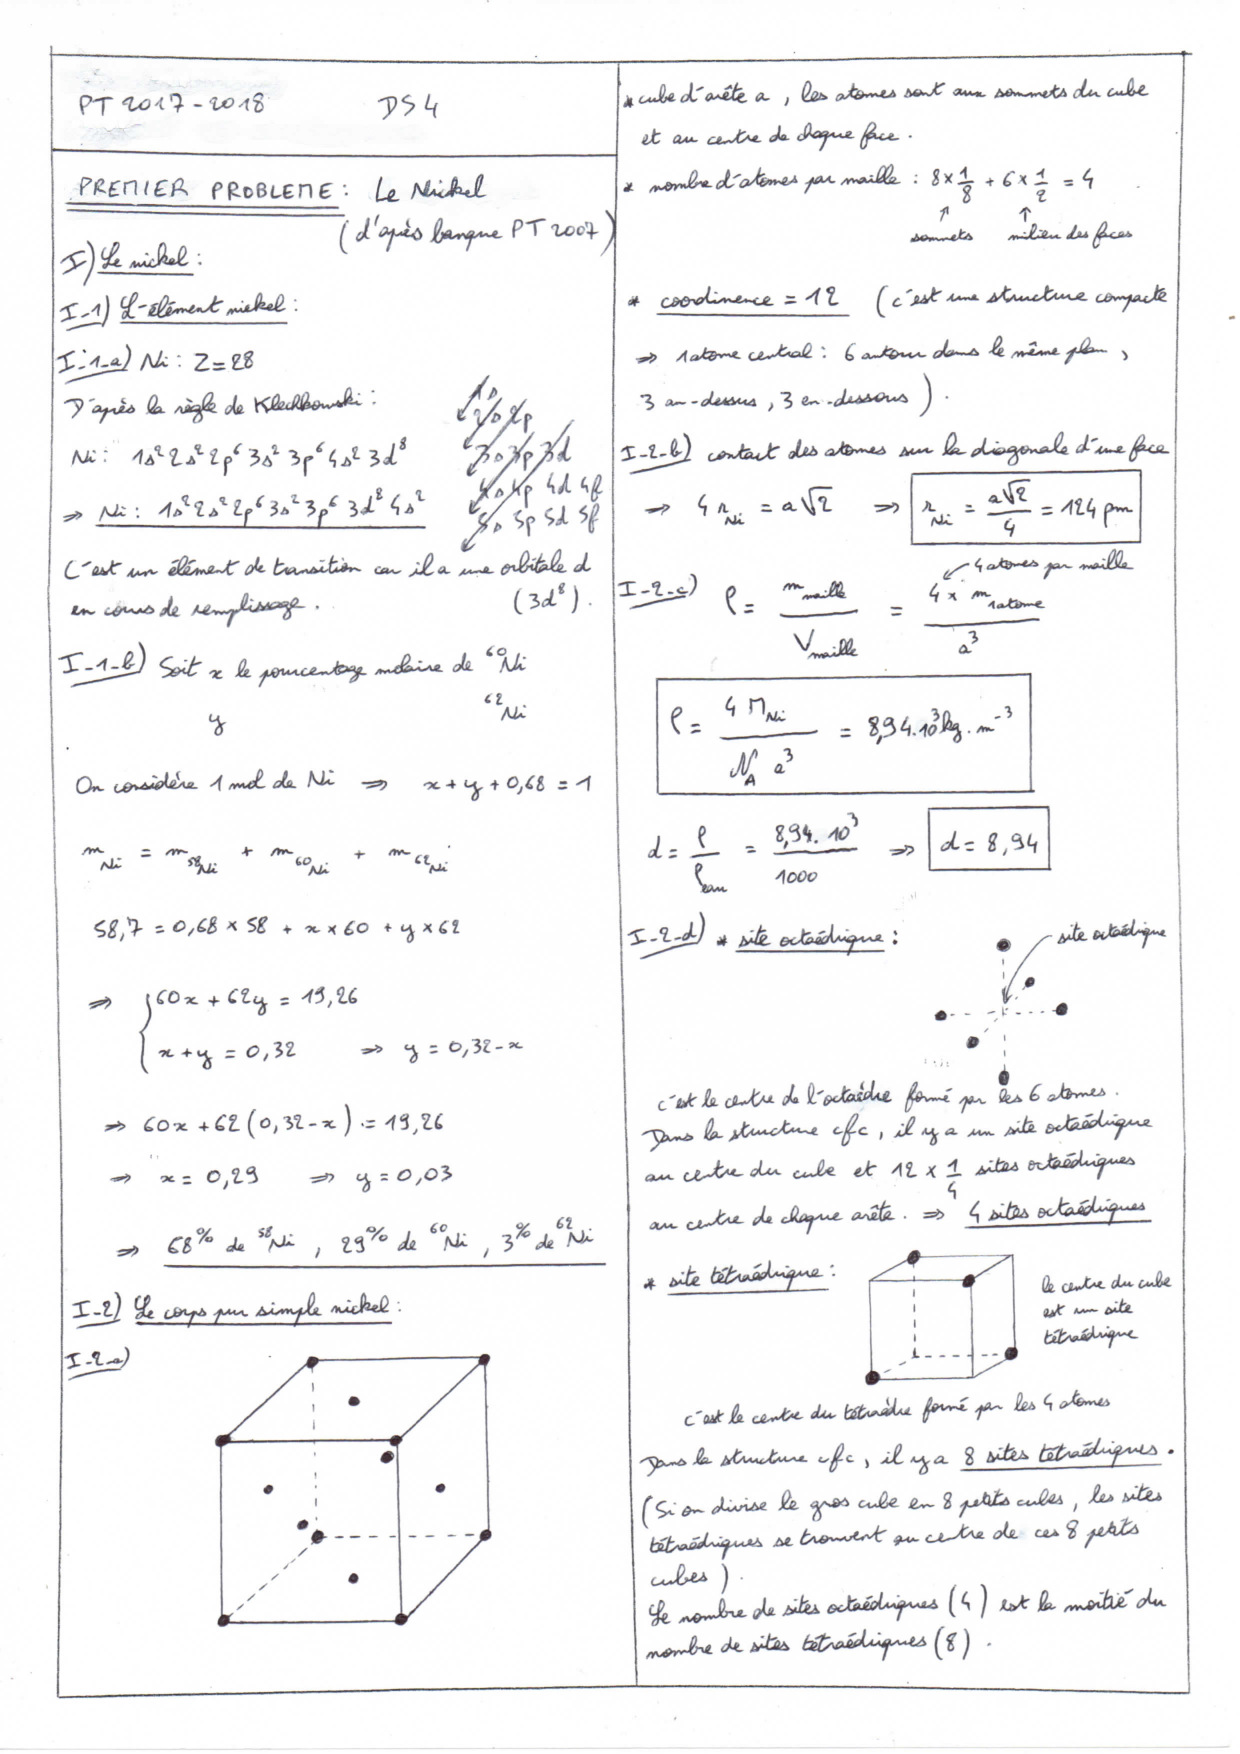 PT 2017-2018 DS4
PREMIER PROBLEME : Le Nickel
(d'après banque PT 2007)
I) Le nickel :
I-1) L'élément nickel :
I-1-a) Ni : Z=28
D'après la règle de Klechkowski :
1s
2s 2p
Ni : 1s² 2s² 2p⁶ 3s² 3p⁶ 4s² 3d⁸
3s 3p 3d
4s 4p 4d 4f
⇒ Ni : 1s² 2s² 2p⁶ 3s² 3p⁶ 3d⁸ 4s²
5s 5p 5d 5f
C'est un élément de transition car il a une orbitale d
en cours de remplissage. (3d⁸).
I-1-b) Soit x le pourcentage molaire de ⁶⁰Ni
y ⁶²Ni
On considère 1 mol de Ni ⇒ x+y+0,68 = 1
m_Ni = m_⁵⁸Ni + m_⁶⁰Ni + m_⁶²Ni
58,7 = 0,68 × 58 + x × 60 + y × 62
⇒ { 60x + 62y = 19,26
x+y = 0,32 ⇒ y = 0,32-x
⇒ 60x + 62(0,32-x) = 19,26
⇒ x = 0,29 ⇒ y = 0,03
⇒ 68% de ⁵⁸Ni , 29% de ⁶⁰Ni , 3% de ⁶²Ni
I-2) Le corps pur simple nickel :
I-2-a)
* cube d'arête a , les atomes sont aux sommets du cube
et au centre de chaque face .
* nombre d'atomes par maille : 8×1/8 + 6×1/2 = 4
↑ ↑
sommets milieu des faces
* coordinence = 12 (c'est une structure compacte
⇒ 1 atome central : 6 autour dans le même plan ,
3 au-dessus , 3 en-dessous ) .
I-2-b) contact des atomes sur la diagonale d'une face
⇒ 4 r_Ni = a√2 ⇒ r_Ni = a√2/4 = 124 pm
4 atomes par maille
I-2-c) ρ = m_maille / V_maille = 4 × m_1atome / a³
ρ = 4 M_Ni / N_A a³ = 8,94.10³ kg.m⁻³
d = ρ / ρ_eau = 8,94.10³ / 1000 ⇒ d = 8,94
I-2-d) * site octaédrique :
site octaédrique
c'est le centre de l'octaèdre formé par les 6 atomes .
Dans la structure cfc , il y a un site octaédrique
au centre du cube et 12 × 1/4 sites octaédriques
au centre de chaque arête . ⇒ 4 sites octaédriques
* site tétraédrique :
le centre du cube
est un site
tétraédrique
c'est le centre du tétraèdre formé par les 4 atomes
Dans la structure cfc , il y a 8 sites tétraédriques .
(Si on divise le gros cube en 8 petits cubes , les sites
tétraédriques se trouvent au centre de ces 8 petits
cubes ) .
Le nombre de sites octaédriques (4) est la moitié du
nombre de sites tétraédriques (8) .